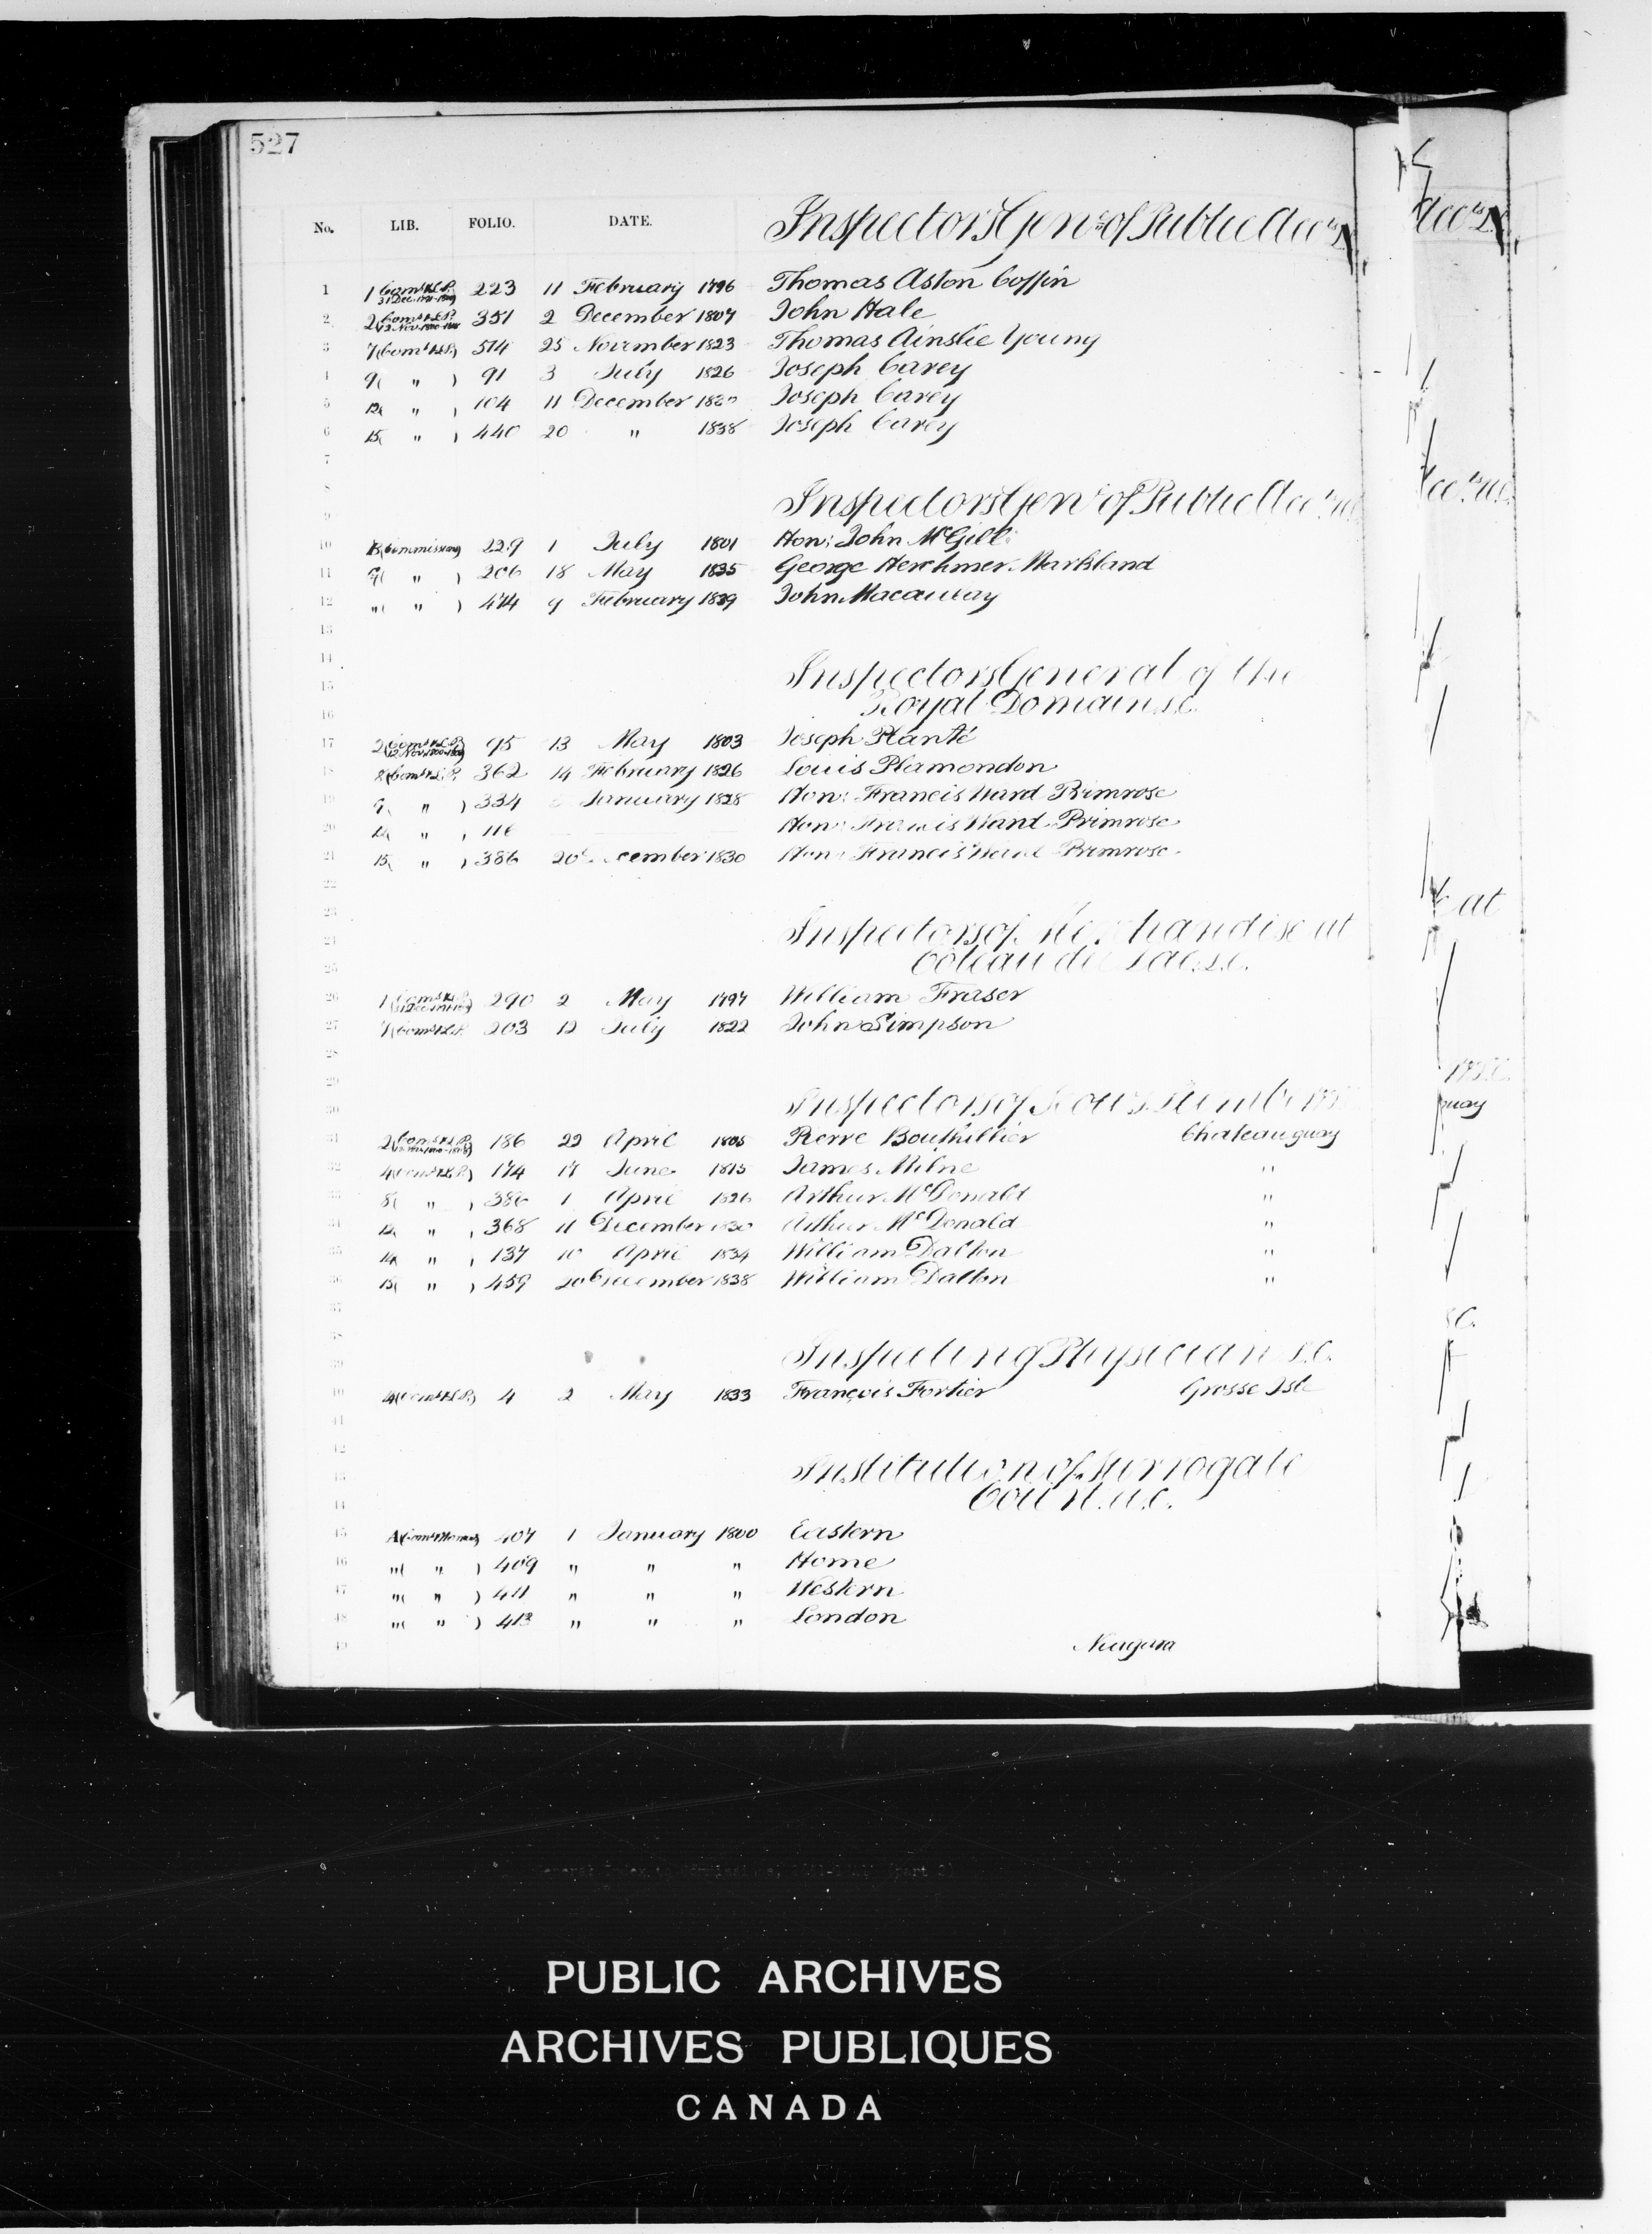 527
No. LIB. FOLIO. DATE. Inspectors Gen. of Public Acc
1 1 223 11 February 1796 Thomas Aston Coffin
2 2 351 2 December 1807 John Hale
3 7 514 25 November 1823 Thomas Ainslie Young
4 9 ( " ) 91 3 July 1826 Joseph Carey
5 12 ( " ) 104 11 December Joseph Carey
6 15 ( " ) 440 20 " 1838 Joseph Carey
7
8
9 Inspectors Gen of Public Acc
10 B (Commissions) 229 1 July 1801 Hon: John McGill
11 ( " ) 206 18 May 1835 George Herchmer Markland
12 " ( " ) 474 9 February 1839 John Macaulay
13
14
15 Inspectors General of the
16 Royal Domain L.C.
17 2 95 13 May 1803 Joseph Planté
18 8 362 14 February 1826 Louis Plamondon
19 9 ( " ) 334 January 1828 Hon: Francis Ward Primrose
20 " Hon: Francis Ward Primrose
21 15 ( " ) 386 20 December 1830 Hon: Francis Ward Primrose
22
23
24 Inspectors of Merchandise at
25 Côteau du Lac L.C.
26 1 290 2 May 1797 William Fraser
27 7 203 12 July 1822 John Simpson
28
29
30 Inspectors of Scows
31 2 186 22 April 1805 Pierre Bouthillier Chateauguay
32 4 174 17 June 1815 James Milne "
33 8 ( " ) 386 1 April 1826 Arthur McDonald "
34 12 ( " ) 368 11 December 1830 Arthur McDonald "
35 14 ( " ) 137 10 April 1834 William Dalton "
36 15 ( " ) 459 20 December 1838 William Dalton "
37
38
39 Inspecting Physician L.C.
40 4 2 May 1833 François Fortier Grosse Isle
41
42
43 Institution of Surrogate
44 Court U.C.
45 A 407 1 January 1800 Eastern
46 " ( " ) 409 " " " Home
47 " ( " ) 411 " " " Western
48 " ( " ) 413 " " " London
49 Niagara
PUBLIC ARCHIVES
ARCHIVES PUBLIQUES
CANADA